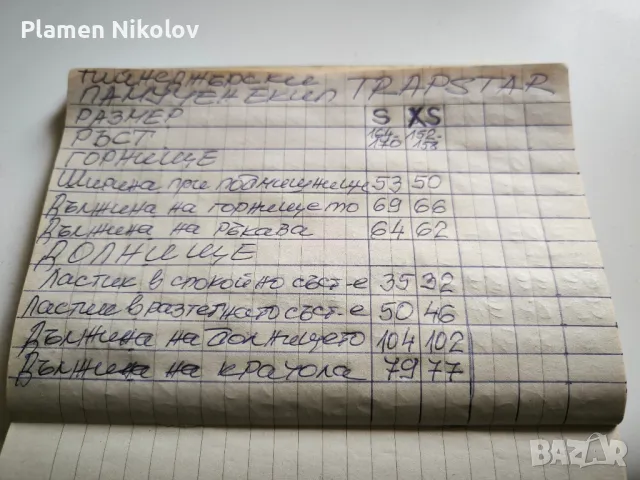 Plamen Nikolov
ТИЙНЕДЖЕРСКИ
ПАМУЧЕН ЕКИП TRAPSTAR
РАЗМЕР S XS
РЪСТ 164-170 152-158
ГОРНИЩЕ
Ширина при подмишнице 53 50
Дължина на горнището 69 66
Дължина на ръкава 64 62
ДОЛНИЩЕ
Ластик в спокойно съст-е 35 32
Ластик в разтегнато съст-е 50 46
Дължина на долнището 104 102
Дължина на крачола 79 77
BAZAR